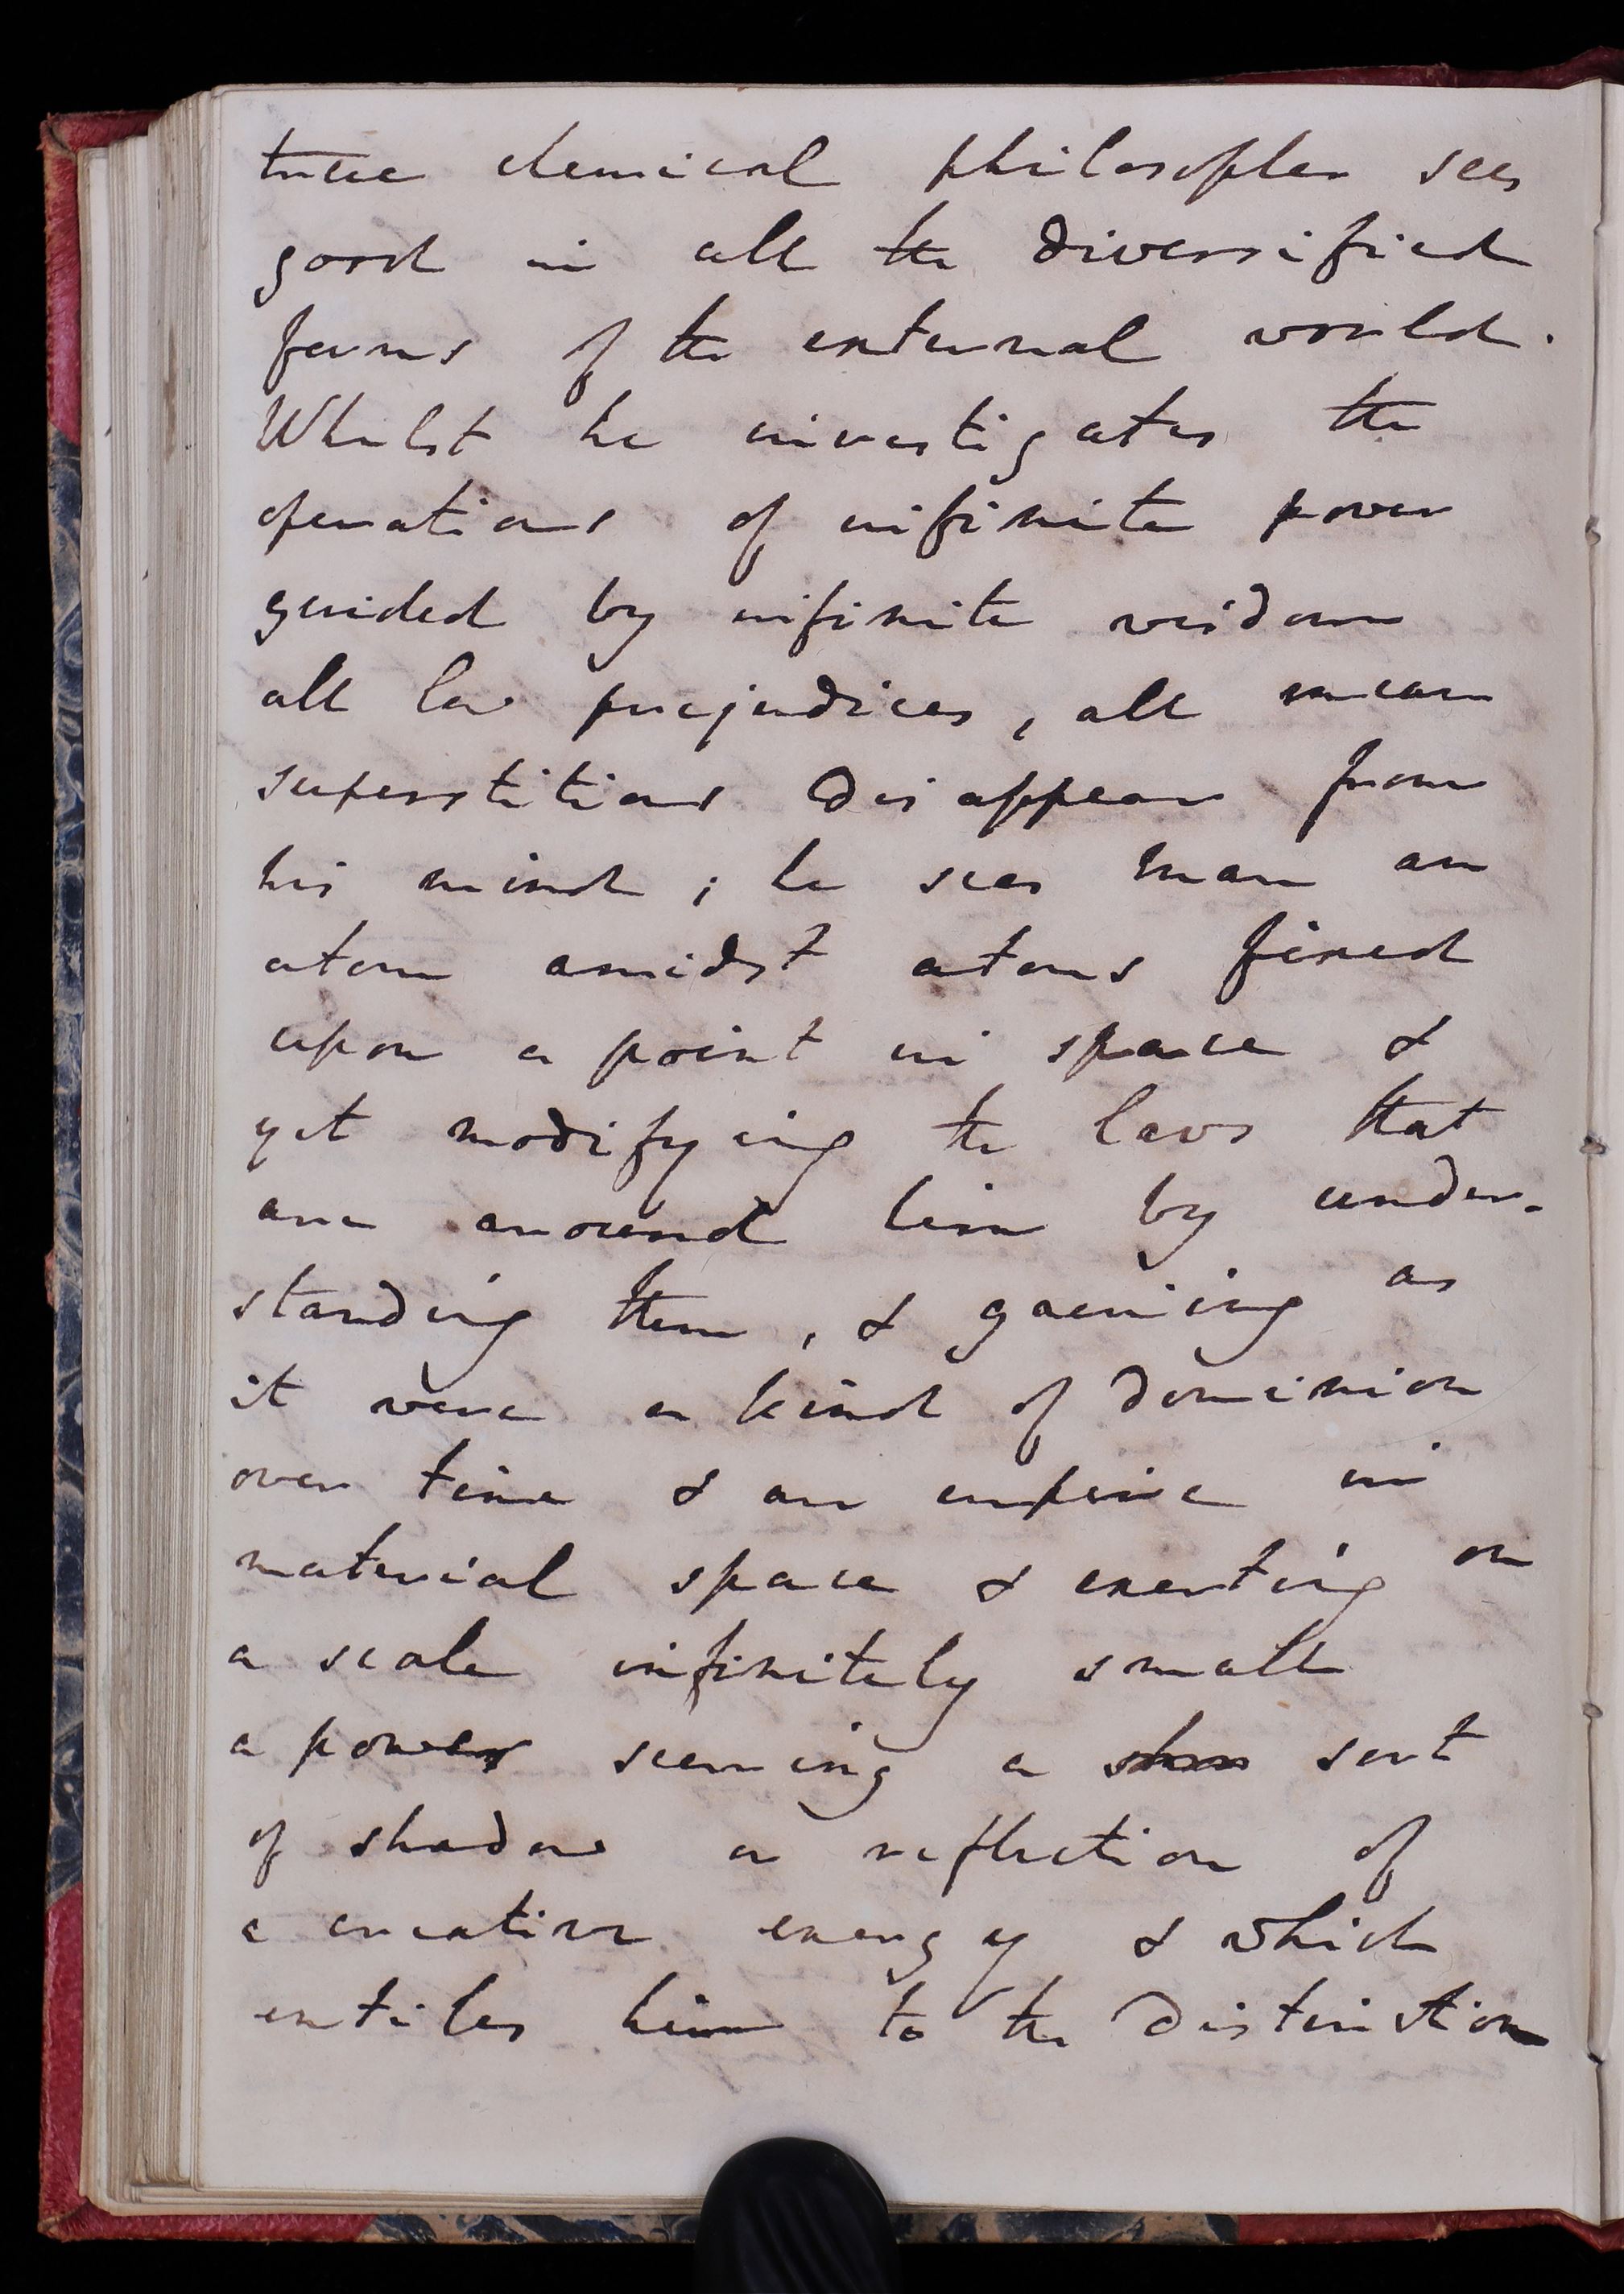 true chemical philosopher sees
good in all the diversified
forms of the external world.
Whilst he investigates the
operations of infinite power
guided by infinite wisdom
all low prejudices, all mean
superstitions disappear from
his mind; he sees man an
atom amidst atoms fixed
upon a point in space &
yet modifying the laws that
are around him by under-
standing them, & gaining as
it were a kind of dominion
over time & an empire in
material space & exerting on
a scale infinitely small
a power seeming a sort
of shadow or reflection of
a creative energy & which
entitles him to the distinction